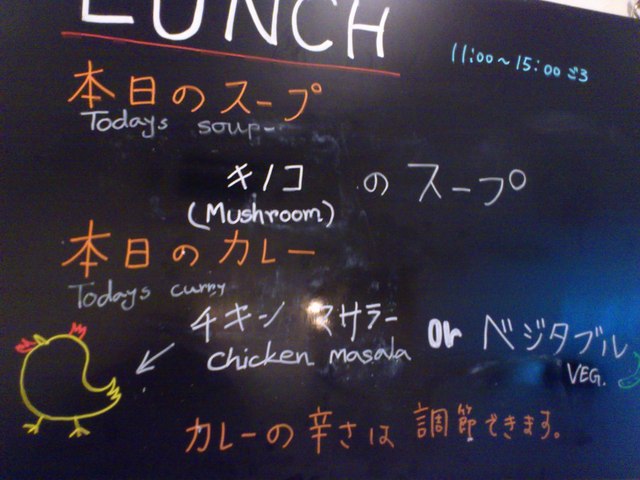 LUNCH
11:00~15:00ごろ
本日のスープ
Todays soup
キノコ のスープ
(Mushroom)
本日のカレー
Todays curry
チキン マサラー or ベジタブル
chicken masala VEG.
カレーの辛さは 調節できます。